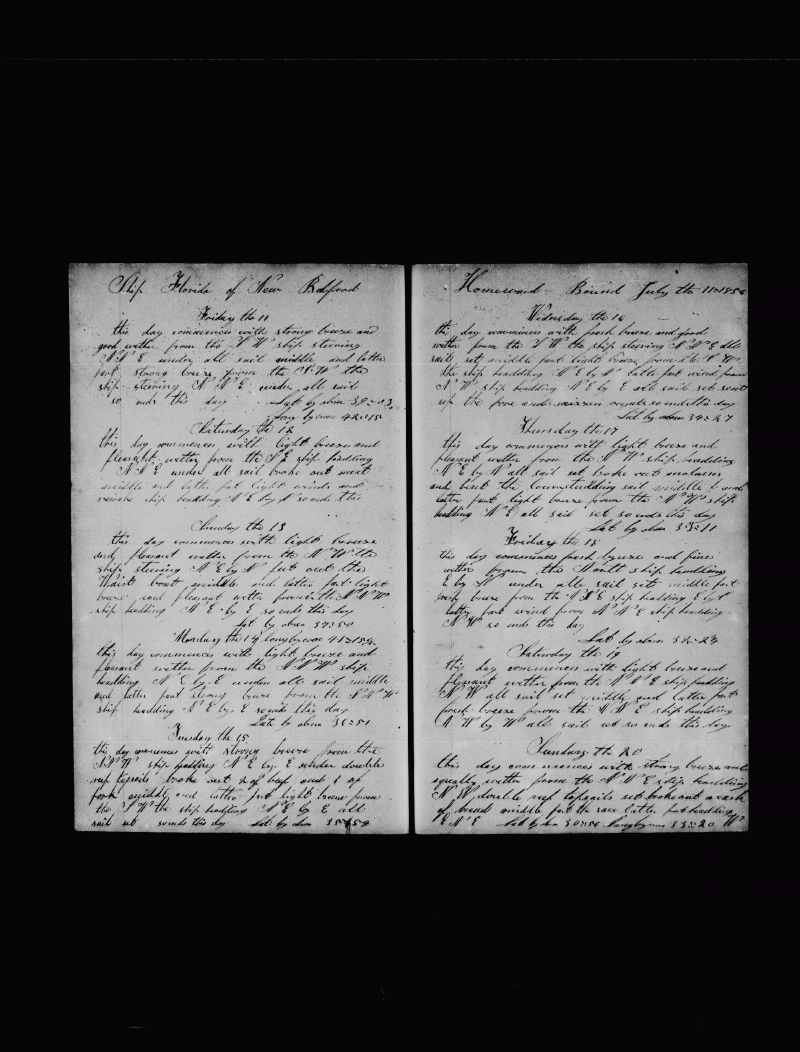 Ship Florida of New Bedford
Friday the 11
this day commences with strong breeze and
good wether from the S W ship steering
N N E under all sail middle and latter
part strong breeze from the S W the
ship steering N N E under all sail
so ends this day Lat by obsn 39=03
Long by cron 42=15
Saturday the 12
this day commences with light breeze and
pleasant wether from the S E ship heading
N N E under all sail broke out meat
middle and latter part light winds and
ship heading N E by N so ends this
Sunday the 13
this day commences with light breeze
and pleasant wether from the N W the
ship steering N E by N put out the
boat middle and latter part light
breeze and pleasant wether from the N N W
ship heading N E by E so ends this day
Lat by obsn 37=50
Monday the 14 Long by cron 41=15
this day commences with light breeze and
pleasant wether from the N N W ship
heading N E by E under all sail middle
and latter part strong breeze from the N N W
ship heading N E by E so ends this day
Lat by obsn 36=51
Tuesday the 15
this day commences with strong breeze from the
N N W ship heading N E by E under double
reef topsails broke out 2 of beef and 1 of
pork middle and latter part light breeze from
the S W the ship heading N E by E all
sail set so ends this day Lat by obsn 35=59
Homeward Bound July the 11=1856
Wednesday the 16
the day commences with fresh breeze and good
wether from the S W the ship steering N N E all
sail set middle part light breeze from the S W
the ship heading N E by N latter part wind from
N W ship heading N E by E all sail set sent
up the fore and mizzen royals so ends this day
Lat by obsn 34=27
Thursday the 17
this day commences with light breeze and
pleasant wether from the N W ship heading
N E by N all sail set Broke out molasses
and bent the lower studding sail middle and
latter part light breeze from the N W ship
heading N E all sail set so ends this day
Lat by obsn 33=11
Friday the 18
this day commences fresh breeze and fine
wether from the North ship heading
E by N under all sail set middle part
fresh breeze from the N N E ship heading E by N
latter part wind from N N E ship heading
N W so ends this day
Lat by obsn 32=23
Saturday the 19
this day commences with light breeze and
pleasant wether from the N N E ship heading
N W all sail set middle and latter part
fresh breeze from the N N E ship heading
N W by W all sail set so ends this day
Sunday the 20
this day commences with strong breeze and
squally wether from the N N E ship heading
N W double reef topsails set broke out a cask
of bread middle part the same latter part heading
E N E Lat by obsn 30=56 Long by cron 33=20 W